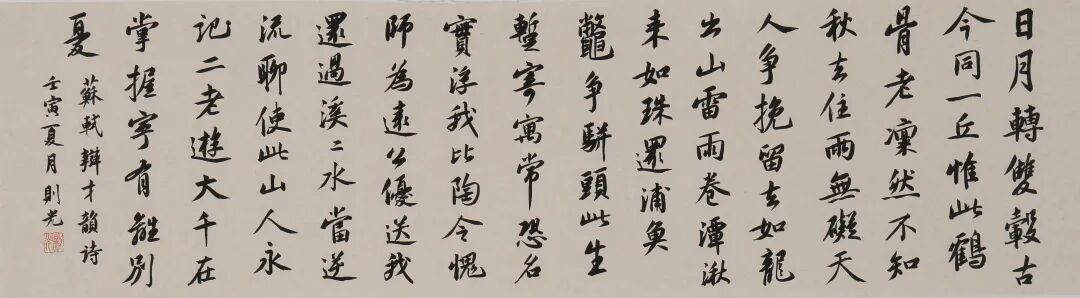 日月轉雙轂古
今同一丘惟此鶴
骨老凜然不知
秋去住兩無礙天
人爭挽留去如龍
出山雷雨卷潭湫
来如珠還浦魚
鼈爭駢頭此生
暫寄寓常恐名
實浮我比陶令愧
師為遠公優送我
還過溪溪水當逆
流聊使此山人永
記二老遊大千在
掌握寧有離別
憂
蘇軾辯才韻詩
壬寅夏月則光